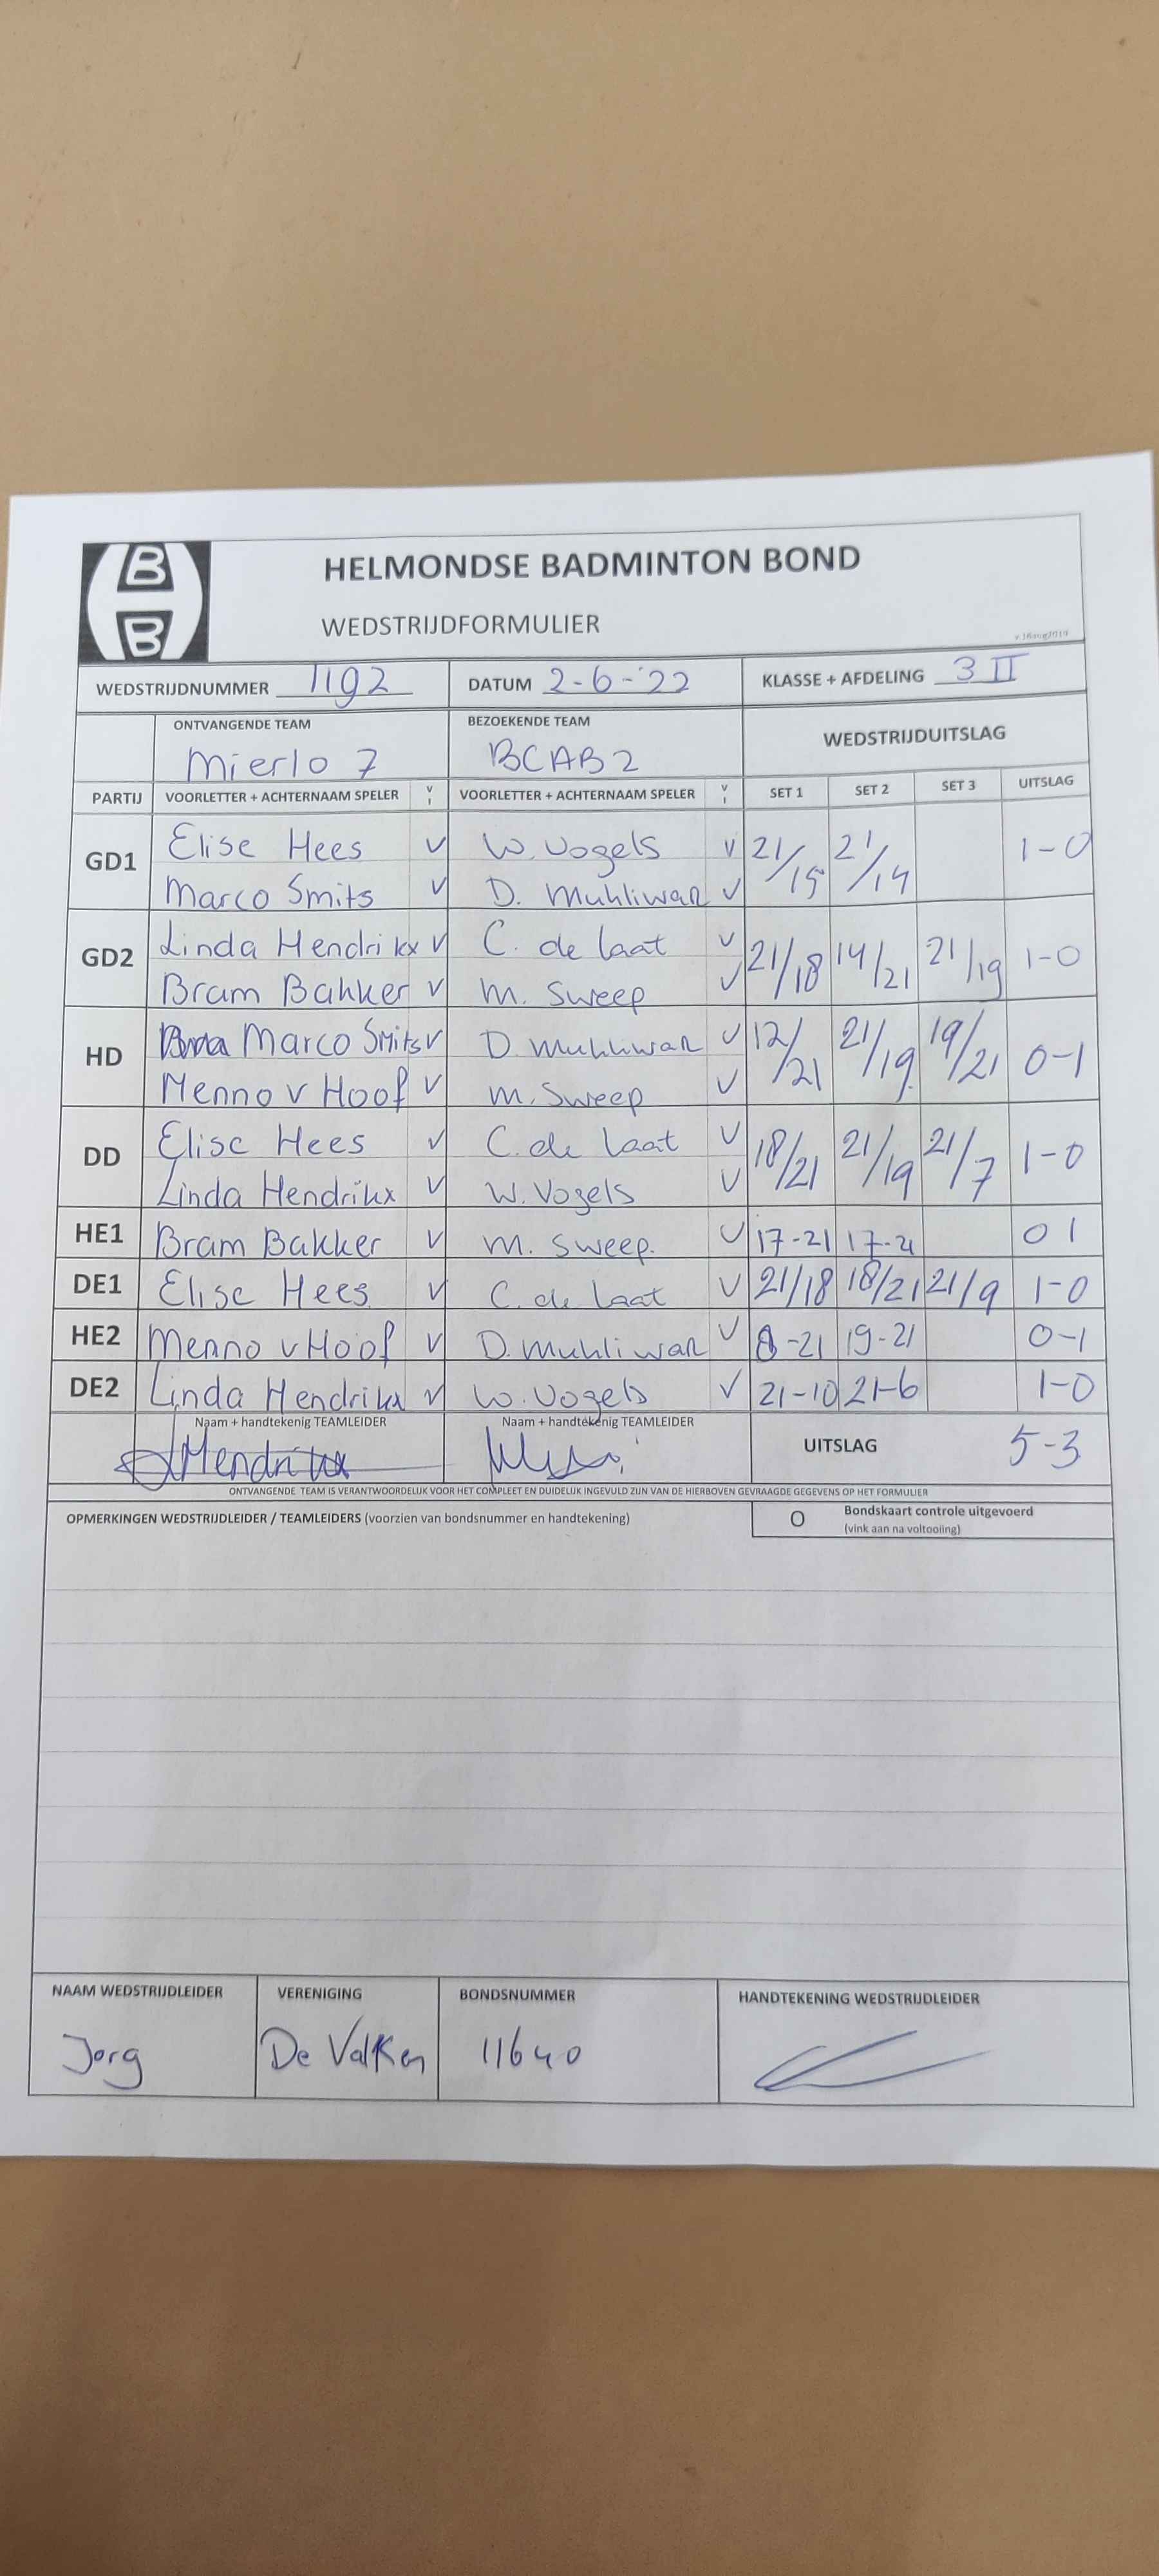 B
B
HELMONDSE BADMINTON BOND
WEDSTRIJDFORMULIER
v.16aug2019
WEDSTRIJDNUMMER 1192 DATUM 2-6-'22 KLASSE + AFDELING 3 II
ONTVANGENDE TEAM BEZOEKENDE TEAM WEDSTRIJDUITSLAG
Mierlo 7 BCAB2
PARTIJ VOORLETTER + ACHTERNAAM SPELER V VOORLETTER + ACHTERNAAM SPELER V SET 1 SET 2 SET 3 UITSLAG
GD1 Elise Hees V W. Vogels V 21/15 21/14 1-0
Marco Smits V D. Muhliwan V
GD2 Linda Hendrikx V C. de Laat V 21/18 14/21 21/19 1-0
Bram Bakker V M. Sweep V
HD Marco Smits V D. Muhliwan V 12/21 21/19 19/21 0-1
Menno v Hoof V M. Sweep V
DD Elise Hees V C. de Laat V 18/21 21/19 21/7 1-0
Linda Hendrikx V W. Vogels V
HE1 Bram Bakker V M. Sweep. V 17-21 17-21 0 1
DE1 Elise Hees V C. de Laat V 21/18 18/21 21/9 1-0
HE2 Menno v Hoof V D. Muhliwan V 8-21 19-21 0-1
DE2 Linda Hendrikx V W. Vogels V 21-10 21-6 1-0
Naam + handtekenig TEAMLEIDER Naam + handtekenig TEAMLEIDER UITSLAG 5-3
Hendrikx
ONTVANGENDE TEAM IS VERANTWOORDELIJK VOOR HET COMPLEET EN DUIDELIJK INGEVULD ZIJN VAN DE HIERBOVEN GEVRAAGDE GEGEVENS OP HET FORMULIER
OPMERKINGEN WEDSTRIJDLEIDER / TEAMLEIDERS (voorzien van bondsnummer en handtekening) O Bondskaart controle uitgevoerd
(vink aan na voltooiing)
NAAM WEDSTRIJDLEIDER VERENIGING BONDSNUMMER HANDTEKENING WEDSTRIJDLEIDER
Jorg De Valken 11640